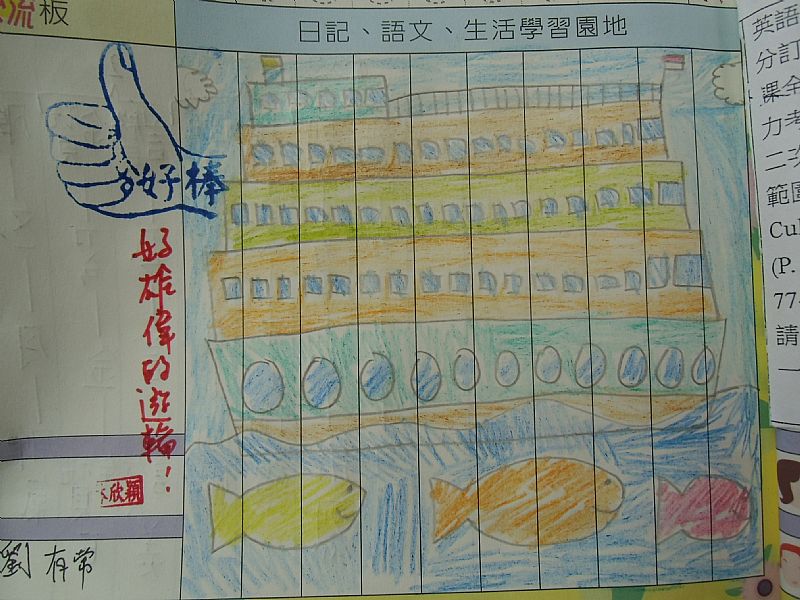 流板
日記、語文、生活學習園地
好棒
好雄偉的遊輪！
欣穎
劉有常
英語
分訂
課全
力考
二次
範圍
Cul
(P.
77
請